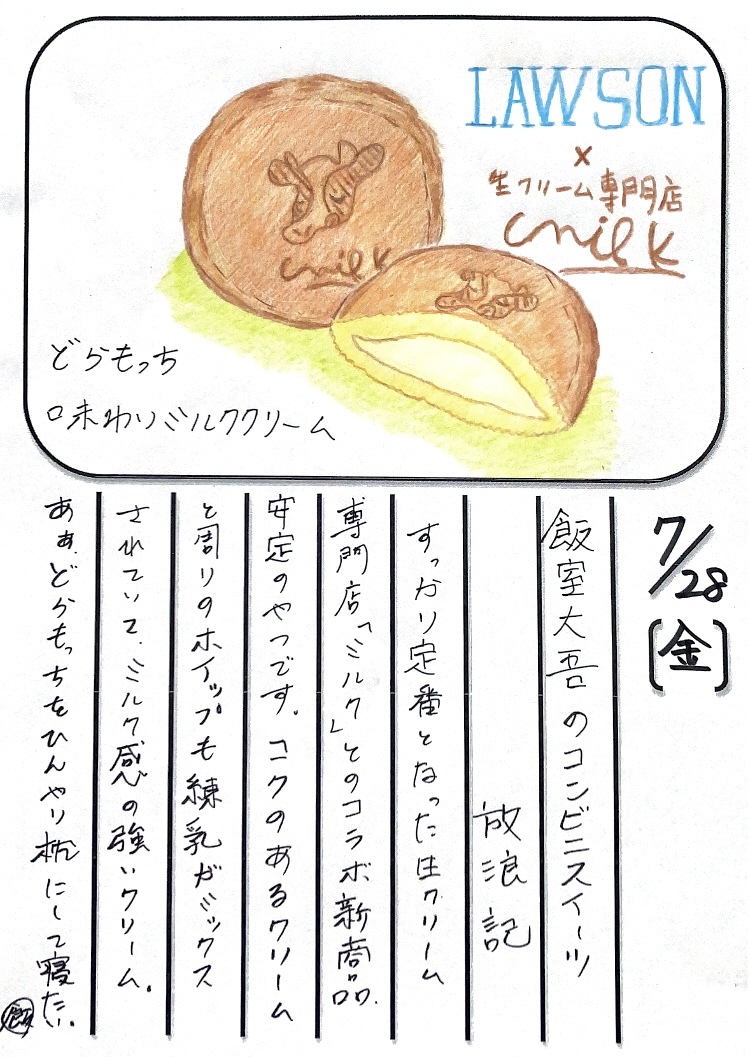 LAWSON
×
生クリーム専門店
milk
milk
どらもっち
口味わりミルククリーム
7/28
[金]
飯室大吾のコンビニスイーツ
放浪記
すっかり定番となった生クリーム
専門店「ミルク」とのコラボ新商品。
安定のやつです。コクのあるクリーム
と周りのホイップも練乳がミックス
されていて、ミルク感の強いクリーム。
あぁ、どらもっちをひんやり枕にして寝たい。
飯